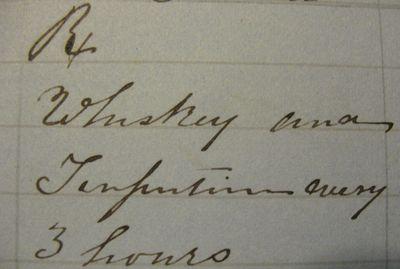 Rx
Whiskey and
Turpentine every
3 hours